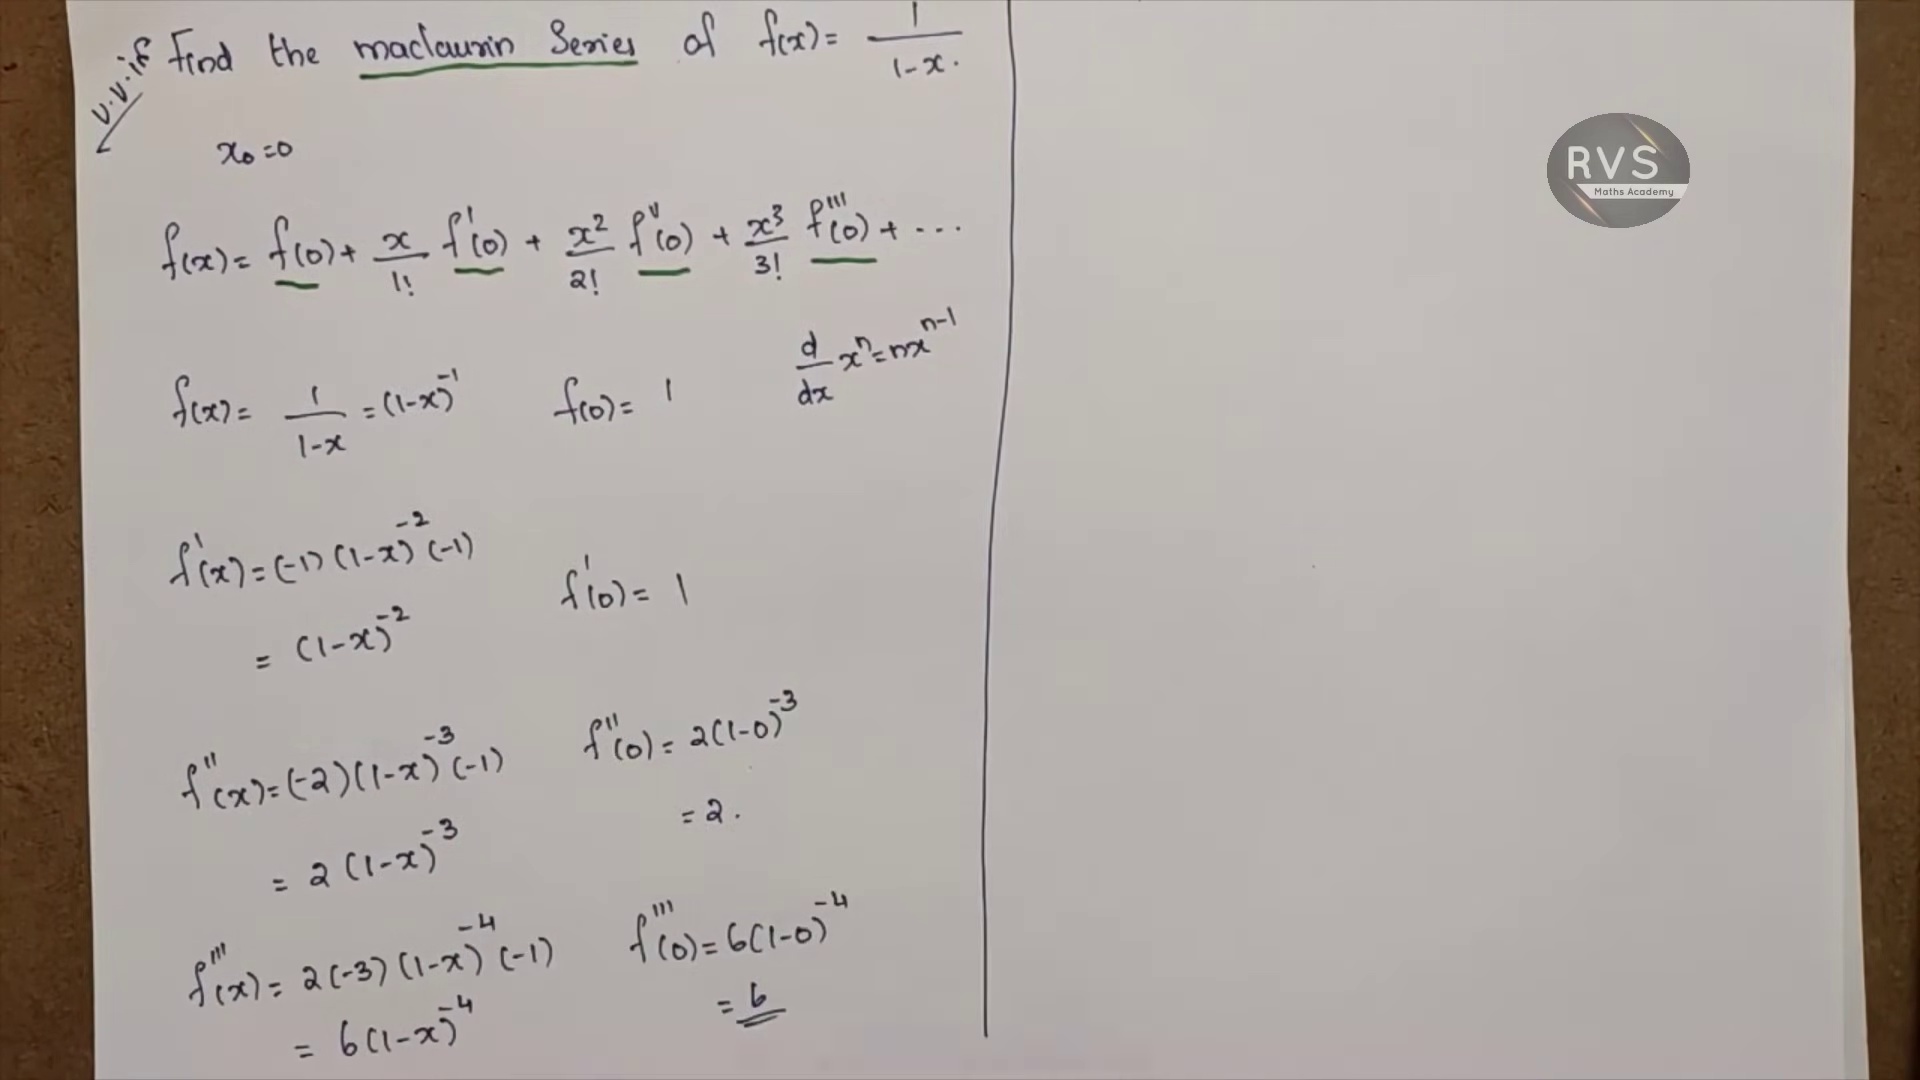 v.v.if
Find the maclaurin Series of f(x) = 1/(1-x).
x₀ = 0
f(x) = f(0) + x/1! f'(0) + x²/2! f''(0) + x³/3! f'''(0) + ...
d/dx xⁿ = nxⁿ⁻¹
f(x) = 1/(1-x) = (1-x)⁻¹ f(0) = 1
f'(x) = (-1) (1-x)⁻² (-1)
= (1-x)⁻² f'(0) = 1
f''(x) = (-2) (1-x)⁻³ (-1) f''(0) = 2(1-0)⁻³
= 2 (1-x)⁻³ = 2.
f'''(x) = 2(-3) (1-x)⁻⁴ (-1) f'''(0) = 6(1-0)⁻⁴
= 6(1-x)⁻⁴ = 6
RVS
Maths Academy